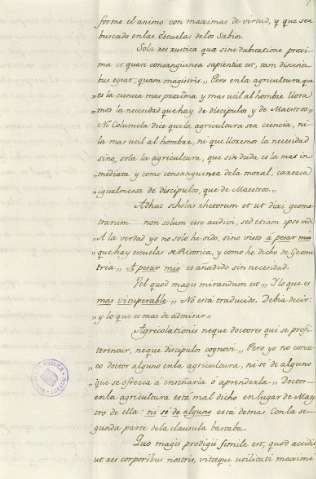 forme el animo con maximas de virtud, y que sea
buscado en las Escuelas de los Sabios.
Sola res rustica quæ sine dubitatione proxi-
ma et quasi consanguinea sapientiæ est, tam discenti-
bus egeat, quam magistris. Pero en la agricultura que
es la ciencia mas proxima y mas util al hombre llora-
mos la necesidad que hay de discipulos y de Maestros.
Ni Columela dice que la agricultura sea ciencia, ni
la mas util al hombre, ni que lloremos la necesidad
sino, sola la agricultura, que sin duda es la mas in-
mediata y como consanguinea de la moral, carezca
igualmente de discipulos, que de Maestros.
Adhuc scholas rhetorum et ut dixi, geome-
trarum non solum esse audivi, sed etiam ipse vidi
A la verdad yo no solo he oido, sino visto a pesar mio
que hay escuelas de Retorica, y como he dicho de Geome-
trea. A pesar mio es añadido sin necesidad.
Vel quod magis mirandum est. I lo que es
mas vituperable. No está traducido. Debia decir:
y lo que es mas de admirar.
Agricolationis neque doctores qui se profi-
terentur, neque discipulos cognovi. Pero yo no conoz-
co doctor alguno en la agricultura, ni sé de alguno
que se ofrezca a enseñarla o aprenderla. Doctor
en la agricultura está mal dicho en lugar de Maes-
tro de ella: ni sé de alguno está demas. Con la se-
gunda parte de la clausula bastaba.
Quo magis prodigii simile est, quod accidit
ut res corporibus nostris, vitæque utilitati maxime